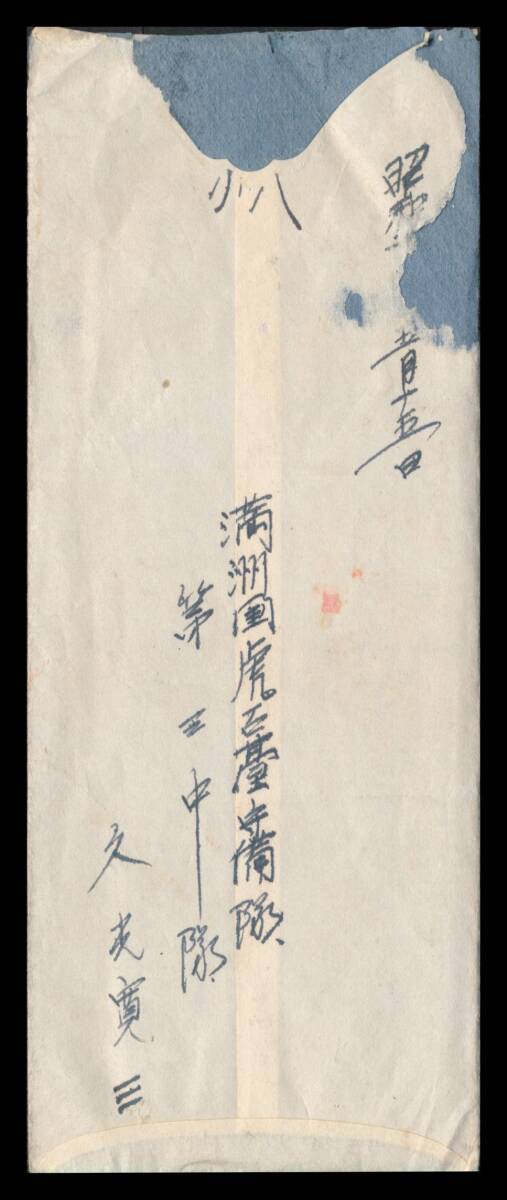 昭和
月十五日
満洲国虎头臺守備隊
第三中隊
久光寛三